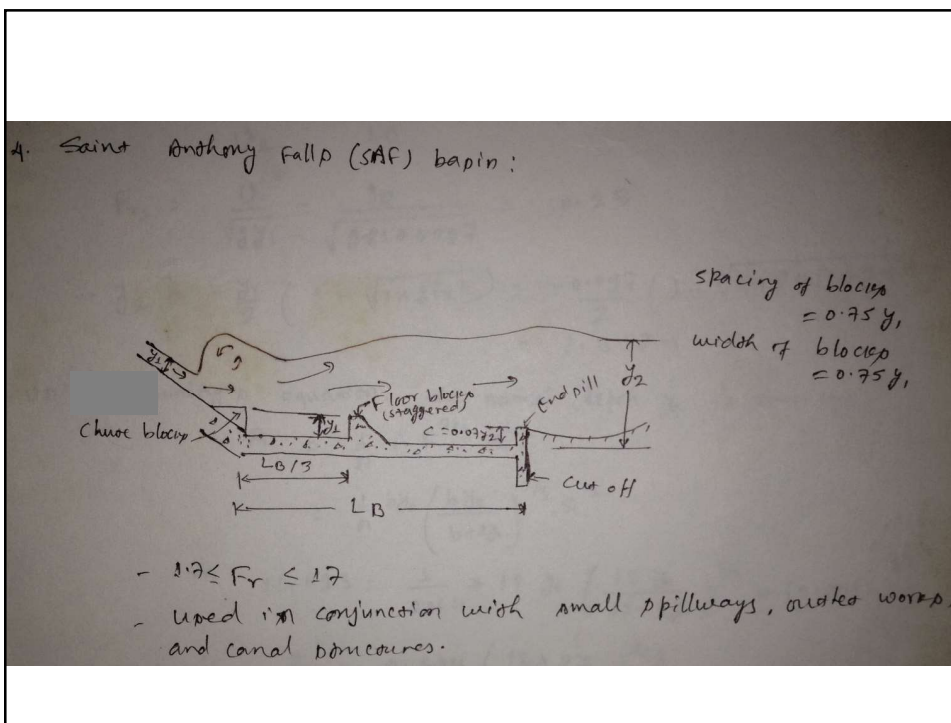 4. Saint Anthony Falls (SAF) basin:
spacing of blocks
= 0.75 y1
width of blocks
= 0.75 y1
y1
y2
Floor blocks
(staggered)
End sill
Chute blocks
y1
C = 0.07y2
LB/3
cut off
LB
- 1.7 ≤ Fr ≤ 17
- used in conjunction with small spillways, outlet works
and canal structures.